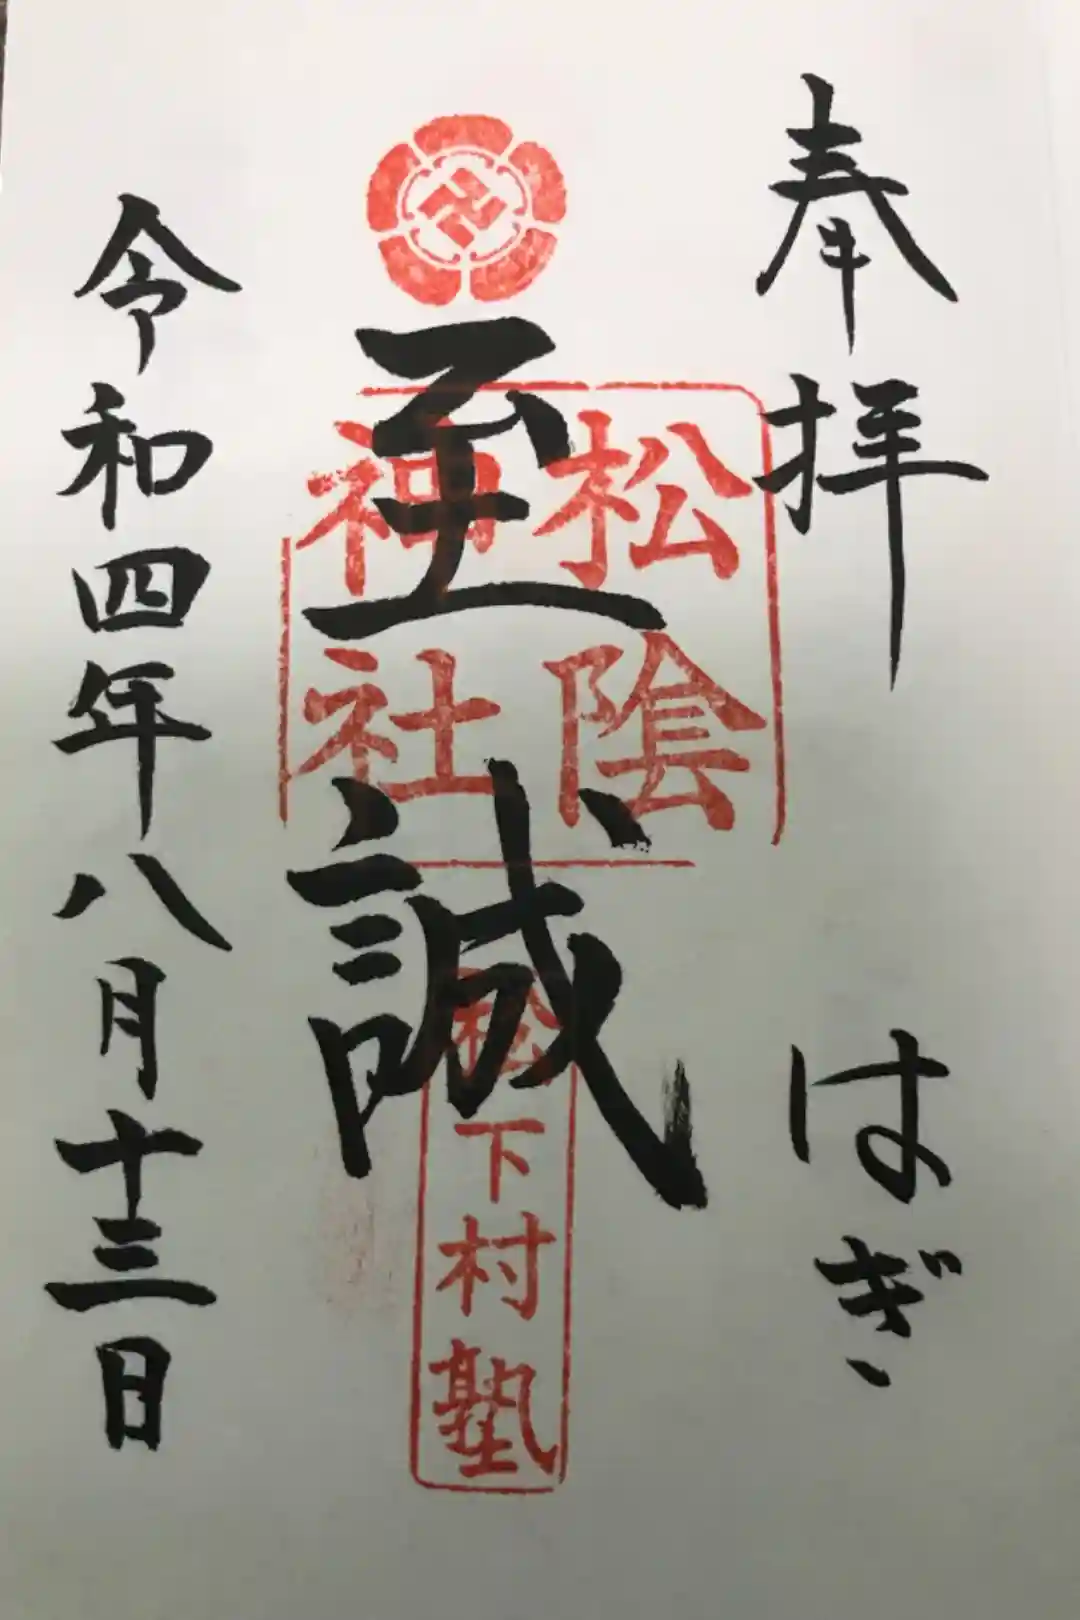 奉拝 はぎ
松陰
神社
至誠
松下村塾
令和四年八月十三日